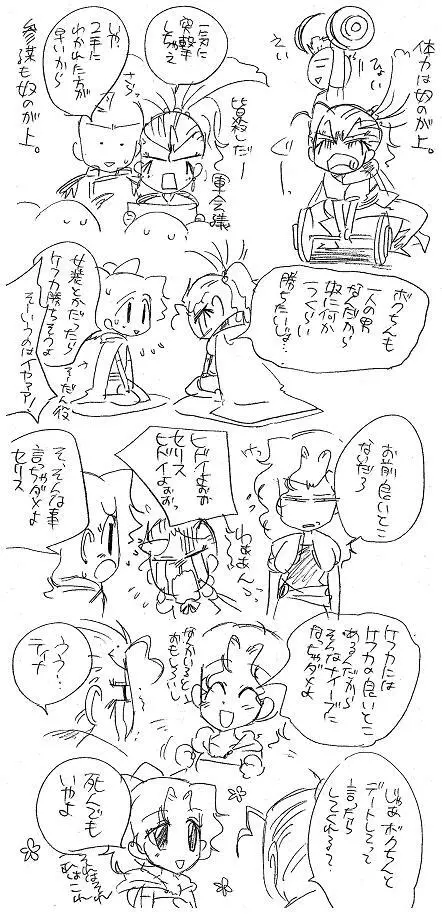 体力は奴のが上。
えい
ひょい
ぐっ
一気に
突撃
しちゃえ
皆殺だー
軍会議
いや
2手に
わかれた方が
早いから
さらっ
参謀も奴のが上。
ボクちんも
一人の男
なんだから
奴に何か
一つくらい
勝ちたいじょ…
女装とかだったら
ケフカ勝ちそうよ
そういうのはイヤァァ!
そうだん役
お前良いとこ
ないだろ
ヒドイよぉぉ
セリス
ヒドイよぉぉっ
わぁぁん
そ、そんな事
言っちゃダメよ
セリス
ケフカには
ケフカの良いとこ
あるんだから
そんなナイーブに
なっちゃダメよ
なんかいると
おもしろいし
ううう…
ティナ
じゃあボクちんと
デートしろって
言ったら
してくれる?
死んでも
いやよ
それはそれ
これはこれ